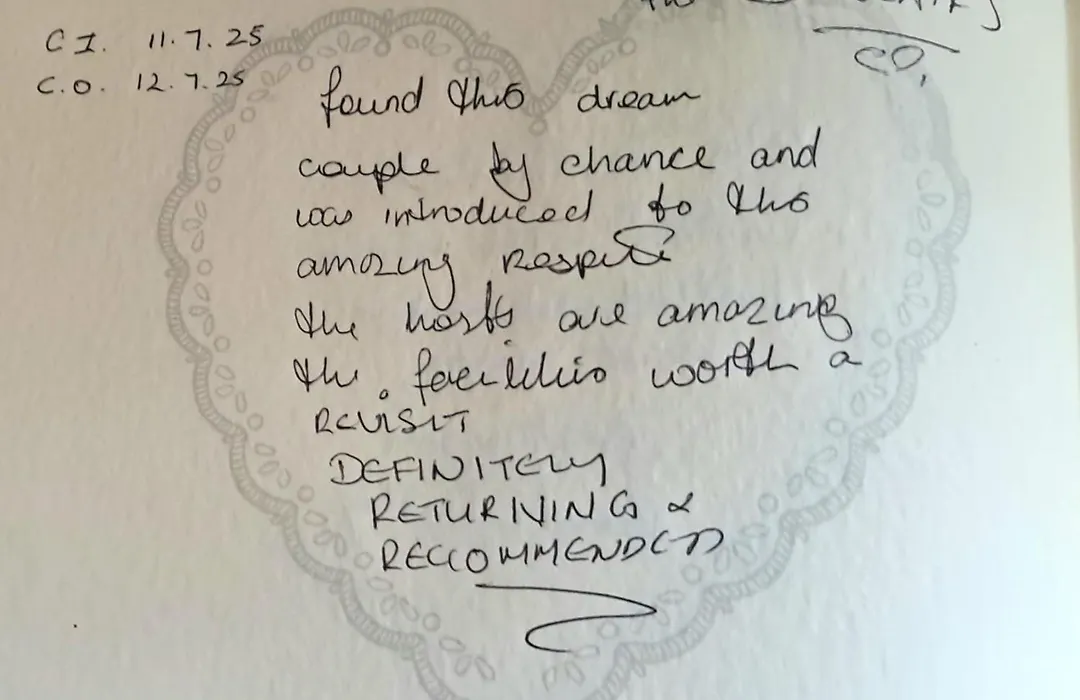 C I. 11.7.25
C.O. 12.7.25
CO,
found this dream
couple by chance and
was introduced to this
amazing Respite
the hosts are amazing
the facilities worth a
REVISIT
DEFINITELY
RETURNING &
RECCOMMENDED